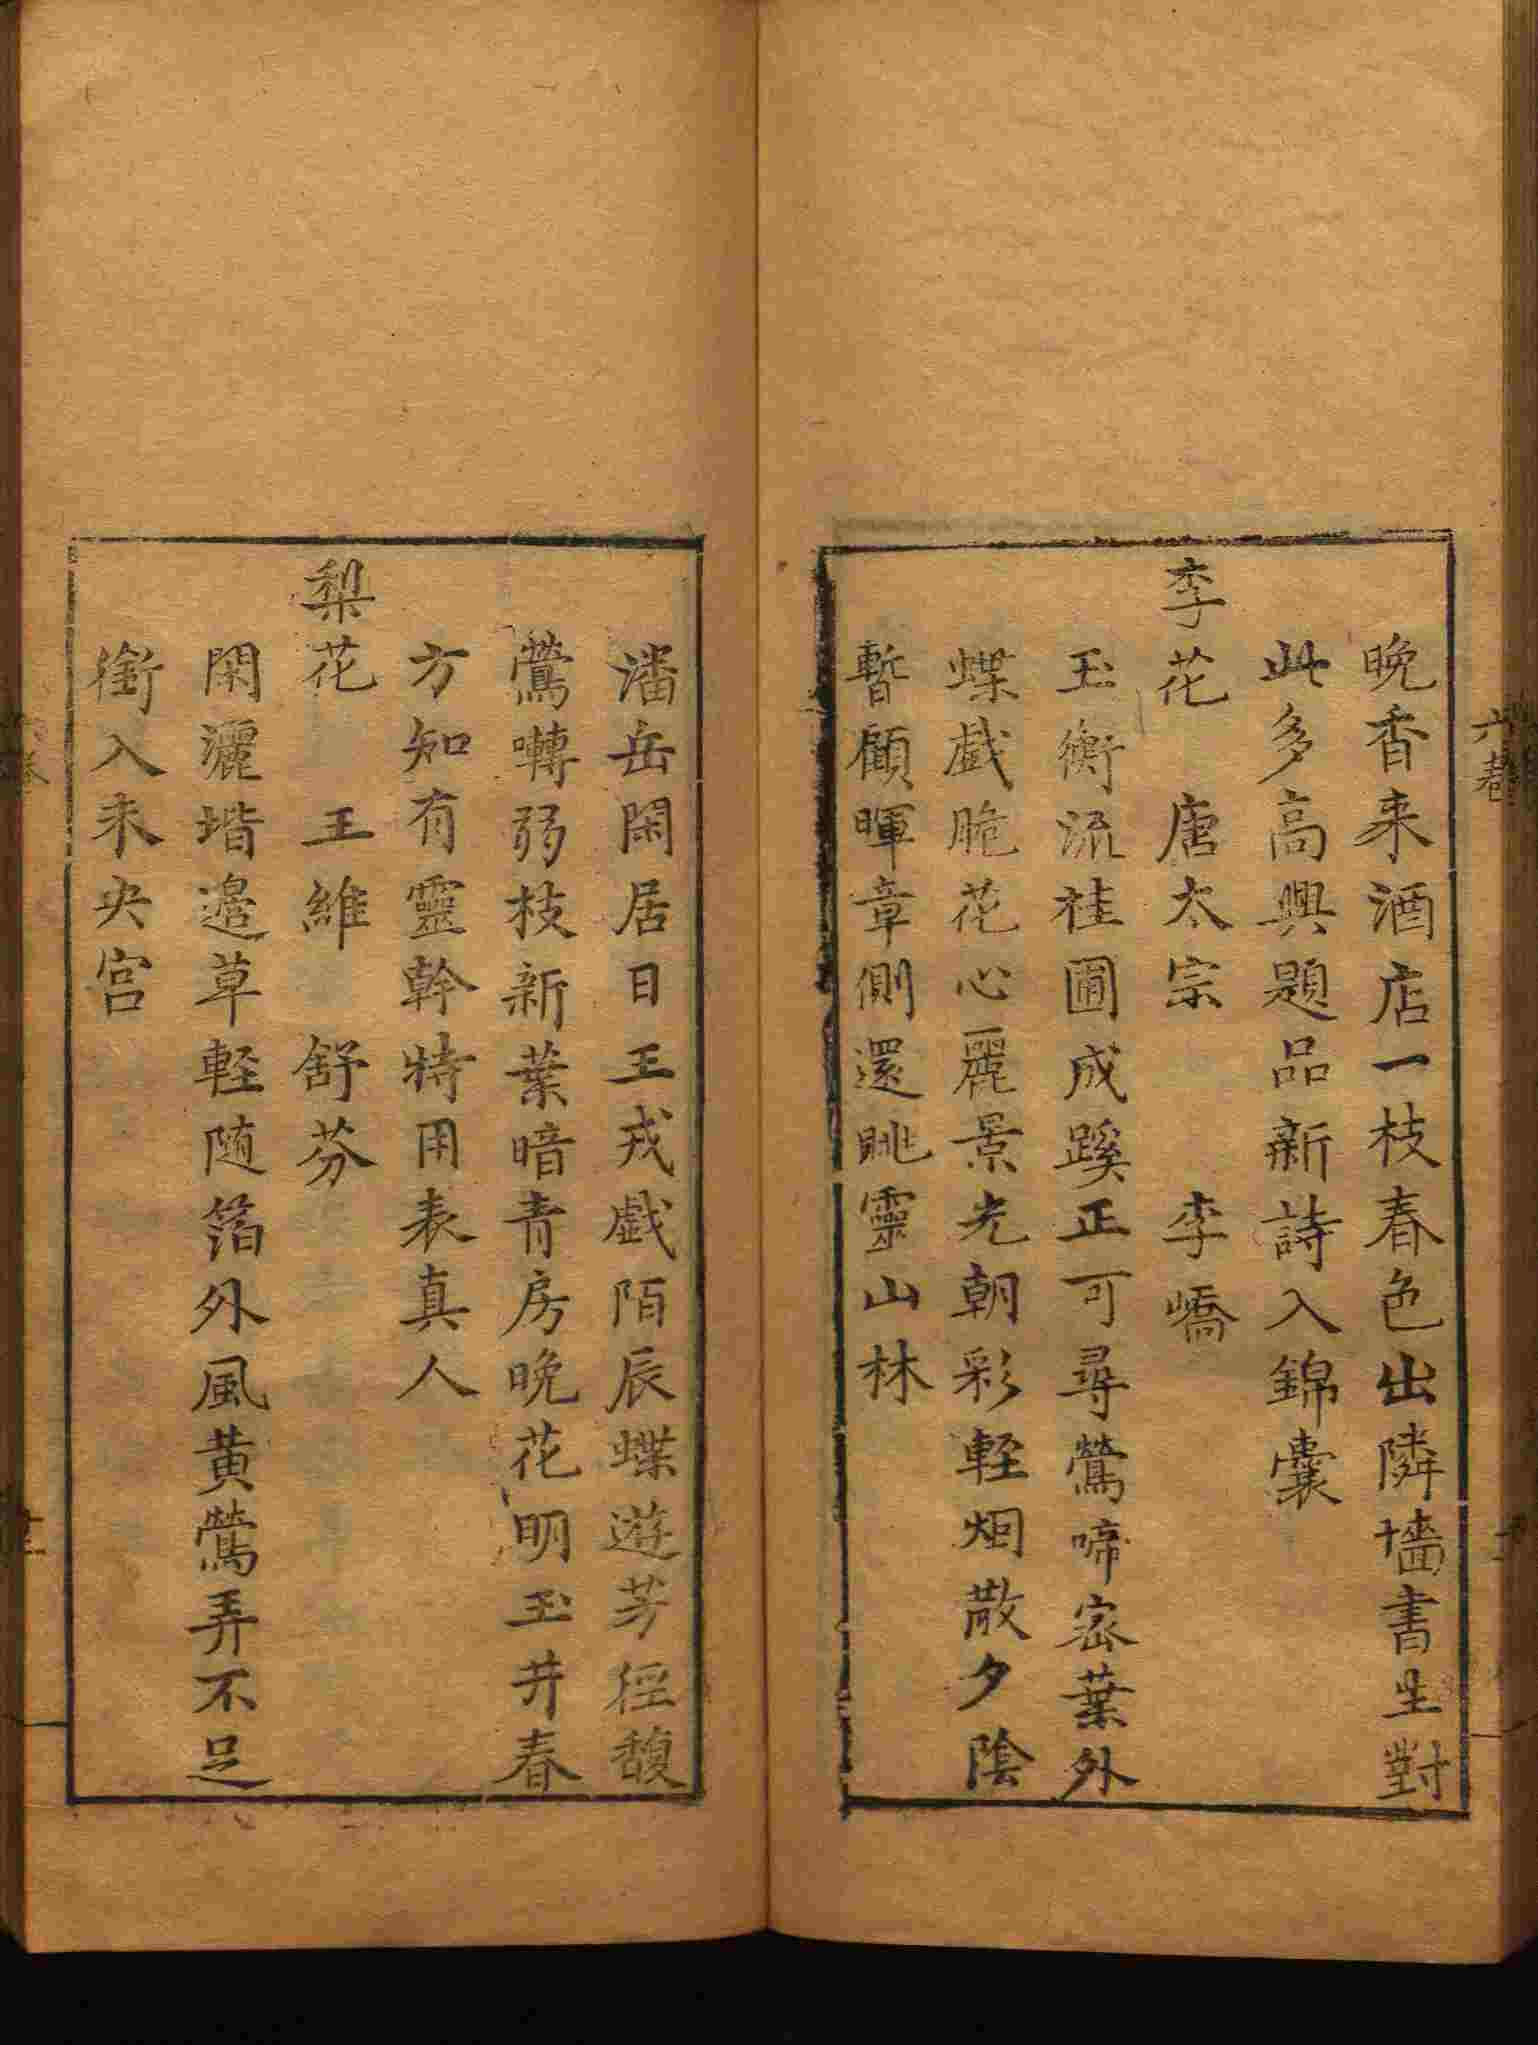 六卷
晚香来酒店一枝春色出隣墻書生對
此多高興題品新詩入錦囊
李花　唐太宗　李嶠
玉衡流桂圃成蹊正可尋鶯啼宻葉外
蝶戯脆花心麗景光朝彩輊烟散夕陰
暫顧暉章側還眺靈山林
潘岳閑居日王戎戯陌辰蝶遊芳徑馥
鶯囀弱枝新葉暗青房晚花明玉井春
方知有靈幹特用表真人
梨花　王維　舒芬
閑灑堦邉草輊随箔外風黄鶯弄不足
銜入未央宮